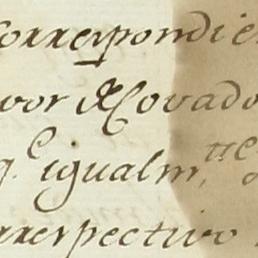 correspondie
por R. Covado
q. E igualm.te
rrespectivo